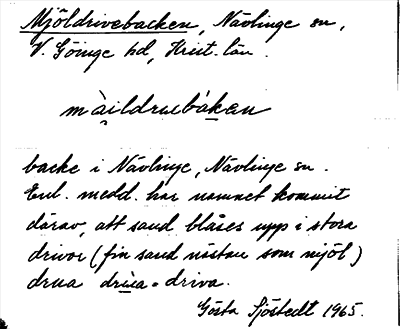 Mjöldrivebacken, Nävlinge sn,
V. Göinge hd, Krist. län.
màildruebàken
backe i Nävlinge, Nävlinge sn.
Enl. medd. har namnet kommit
därav, att sand blåses upp i stora
drivor (fin sand nästan som mjöl)
drua drùa = driva.
Gösta Sjöstedt 1965.